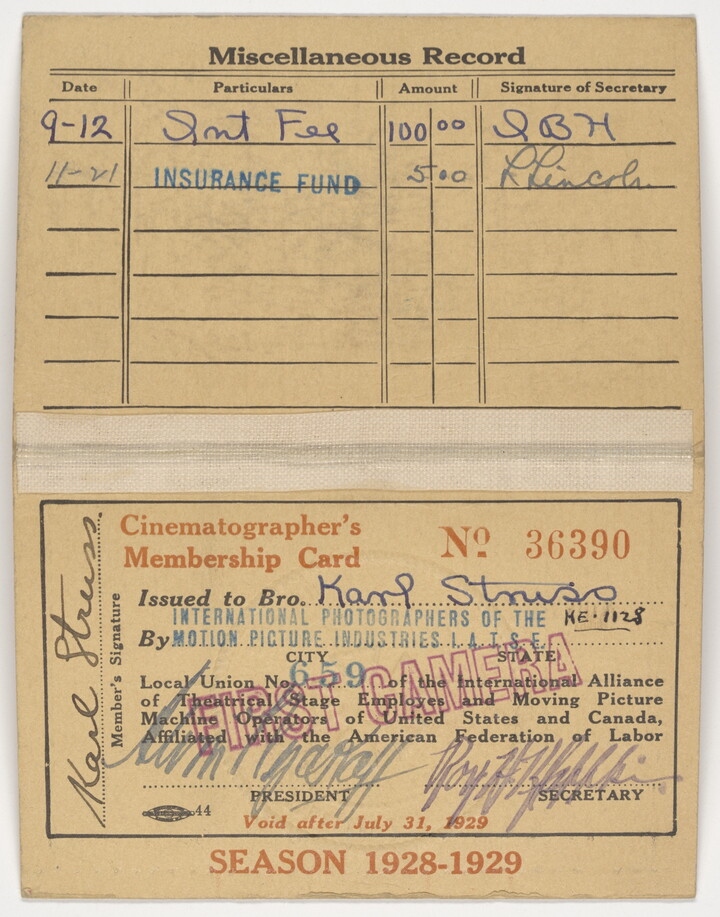 Miscellaneous Record
Date Particulars Amount Signature of Secretary
9-12 Int Fee 100 00 I B H
11-21 INSURANCE FUND 5 00 Lincoln
Cinematographer's
Membership Card
Nº 36390
Issued to Bro. Karl Struss
INTERNATIONAL PHOTOGRAPHERS OF THE
KE-1128
By MOTION PICTURE INDUSTRIES I.A.T.S.E.
CITY STATE
Local Union No. 659 of the International Alliance
of Theatrical Stage Employes and Moving Picture
Machine Operators of United States and Canada,
Affiliated with the American Federation of Labor
FIRST CAMERA
PRESIDENT SECRETARY
44
Void after July 31, 1929
Karl Struss
Member's Signature
SEASON 1928-1929